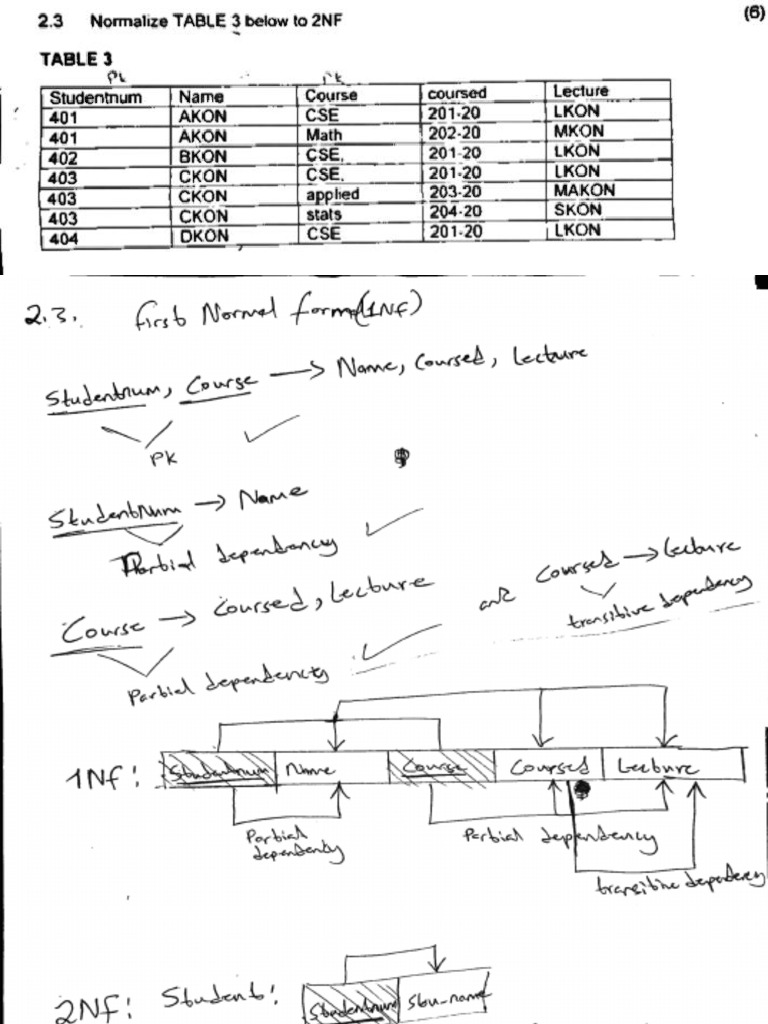 2.3 Normalize TABLE 3 below to 2NF (6)
TABLE 3
PK PK
Studentnum Name Course coursed Lecture
401 AKON CSE 201-20 LKON
401 AKON Math 202-20 MKON
402 BKON CSE. 201-20 LKON
403 CKON CSE. 201-20 LKON
403 CKON applied 203-20 MAKON
403 CKON stats 204-20 SKON
404 DKON CSE 201-20 LKON
2.3. First Normal form(1NF)
Studentnum, Course → Name, Coursed, Lecture
PK
Studentnum → Name
Partial dependency
Course → Coursed, Lecture and Coursed → Lecture
transitive dependency
Partial dependency
1NF: Studentnum Name Course Coursed Lecture
Partial dependency Partial dependency
transitive dependency
2NF: Student: Studentnum stu-name